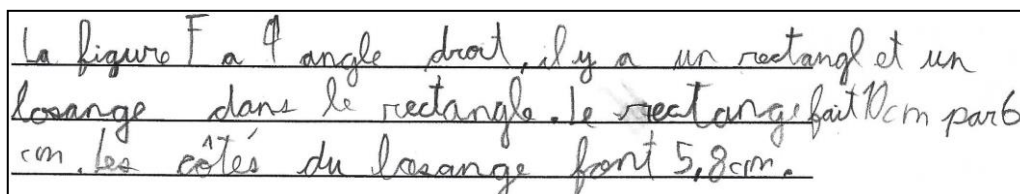 La figure F a 4 angle droit, il y a un rectangl et un
losange dans le rectangle. Le rectange fait 10 cm par 6
cm. Les côtés du losange font 5,8 cm.